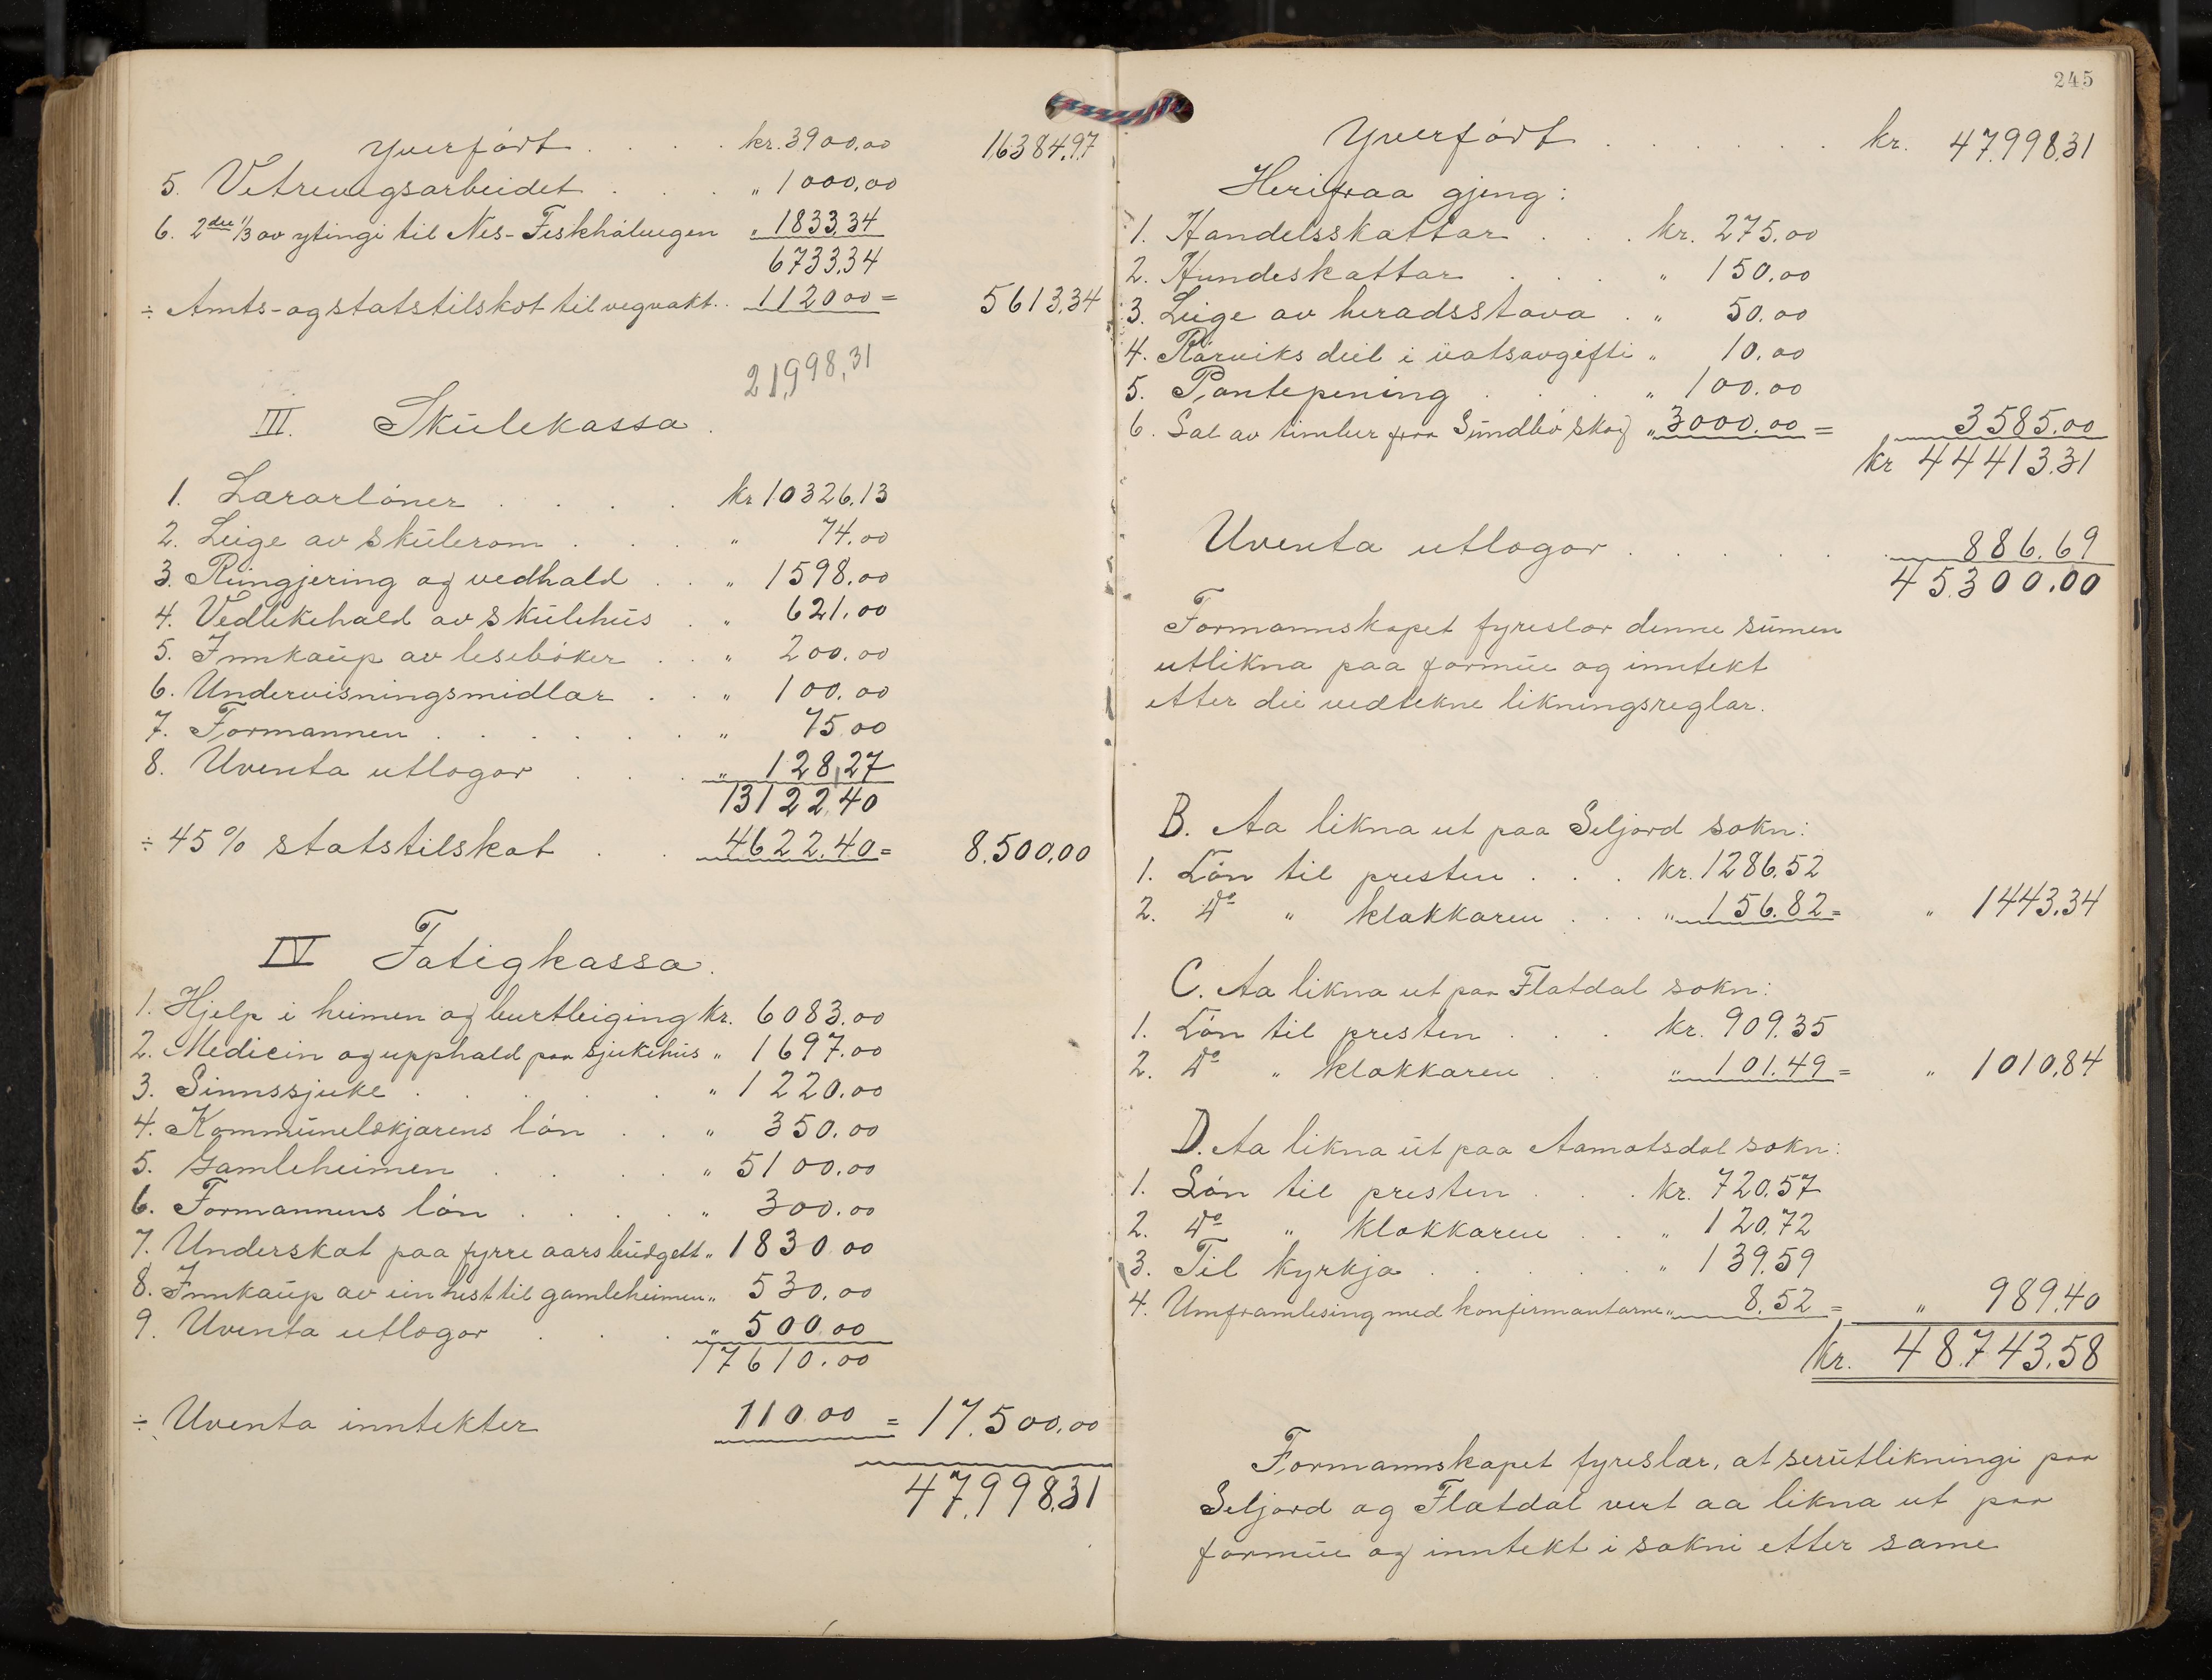 Yverført . . . . kr. 3900,00 16384,97
5. Vetrevegsarbeidet . . . " 1000,00
6. 2dre 1/3 av ytingi til Nes-Feskhålvegen " 1833,34
6733,34
÷ Amts- og statstilskot til vegvakt . . 1120 00 = 5613,34
21,998,31
III. Skülekassa.
1. Lærarløner . . . . kr 10326,13
2. Leige av skülerom . . . " 74,00
3. Reingjering og vedhald . . " 1598,00
4. Vedlikehald av skülehüs . " 621,00
5. Innkaüp av lesebøker . . " 200,00
6. Undervisningsmidlar . . " 100,00
7. Formannen . . . . . . " 75,00
8. Uventa utlogor . . . " 128,27
13122,40
÷ 45% statstilskot . . 4622,40 = 8.500,00
IV Fatigkassa.
1. Hjelp i heimen og burtleiging kr. 6083,00
2. Medicin og upphald paa sjukehüs " 1697,00
3. Sinnssjuke . . . . . " 1220,00
4. Kommünelækjarens løn . . " 350,00
5. Gamleheimen . . . . " 5100,00
6. Formannens løn . . . . " 300,00
7. Underskot paa fyrre aars büdgett " 1830 00
8. Innkaüp av ein hest til gamleheimen " 530,00
9. Uventa utlogor . . . " 500 00
17610,00
÷ Uventa inntekter 110 00 = 17.500,00
47.998,31
245
Yverført . . . . . . kr. 47.998,31
Herifraa gjeng:
1. Handelsskattar . . . kr. 275,00
2. Hundeskattar . . . " 150,00
3. Leige av heradsstova . " 50,00
4. Rørviks deil i üatsavgifti " 10,00
5. Pantepening . . . " 100,00
6. Sal av timber fraa Sundbø skog " 3000,00 = 3585,00
kr 44413,31
Uventa utlogor . . . . . . 886,69
45.300,00
Formannskapet fyreslær denne sümen
utlikna paa formüe og inntekt
etter dei vedtekne likningsreglar.
B. Aa likna ut paa Seljord sokn:
1. Løn til presten . . . kr. 1286,52
2. Do " klokkaren . . . " 156,82 = " 1443,34
C. Aa likna ut paa Flatdal sokn:
1. Løn til presten . . . kr. 909,35
2. Do " klokkaren . . " 101,49 = " 1010,84
D. Aa likna üt paa Aamotsdal sokn:
1. Løn til presten . . . kr. 720,57
2. Do " klokkaren . . " 120,72
3. Til kyrkja . . . . . " 139,59
4. Umframlesing med konfirmantarne " 8,52 = " 989,40
kr. 48.743,58
Formannskapet fyreslær, at serütlikningi paa
Seljord og Flatdal vert aa likna ut paa
formüe og inntekt i sokni etter same